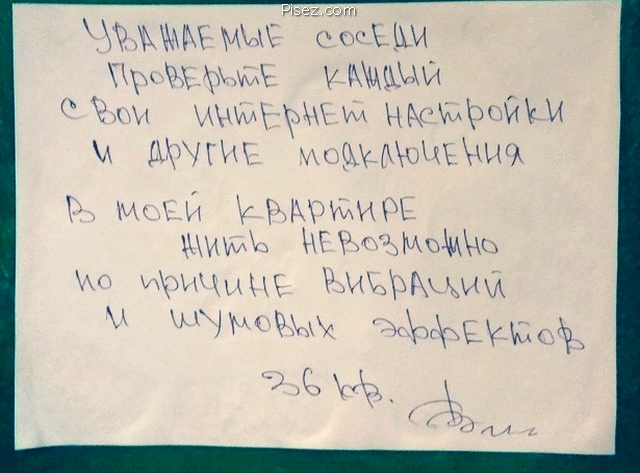 Pisez.com
Уважаемые соседи
Проверьте каждый
свои интернет настройки
и другие подключения
В моей квартире
жить невозможно
по причине вибраций
и шумовых эффектов
36 кв.